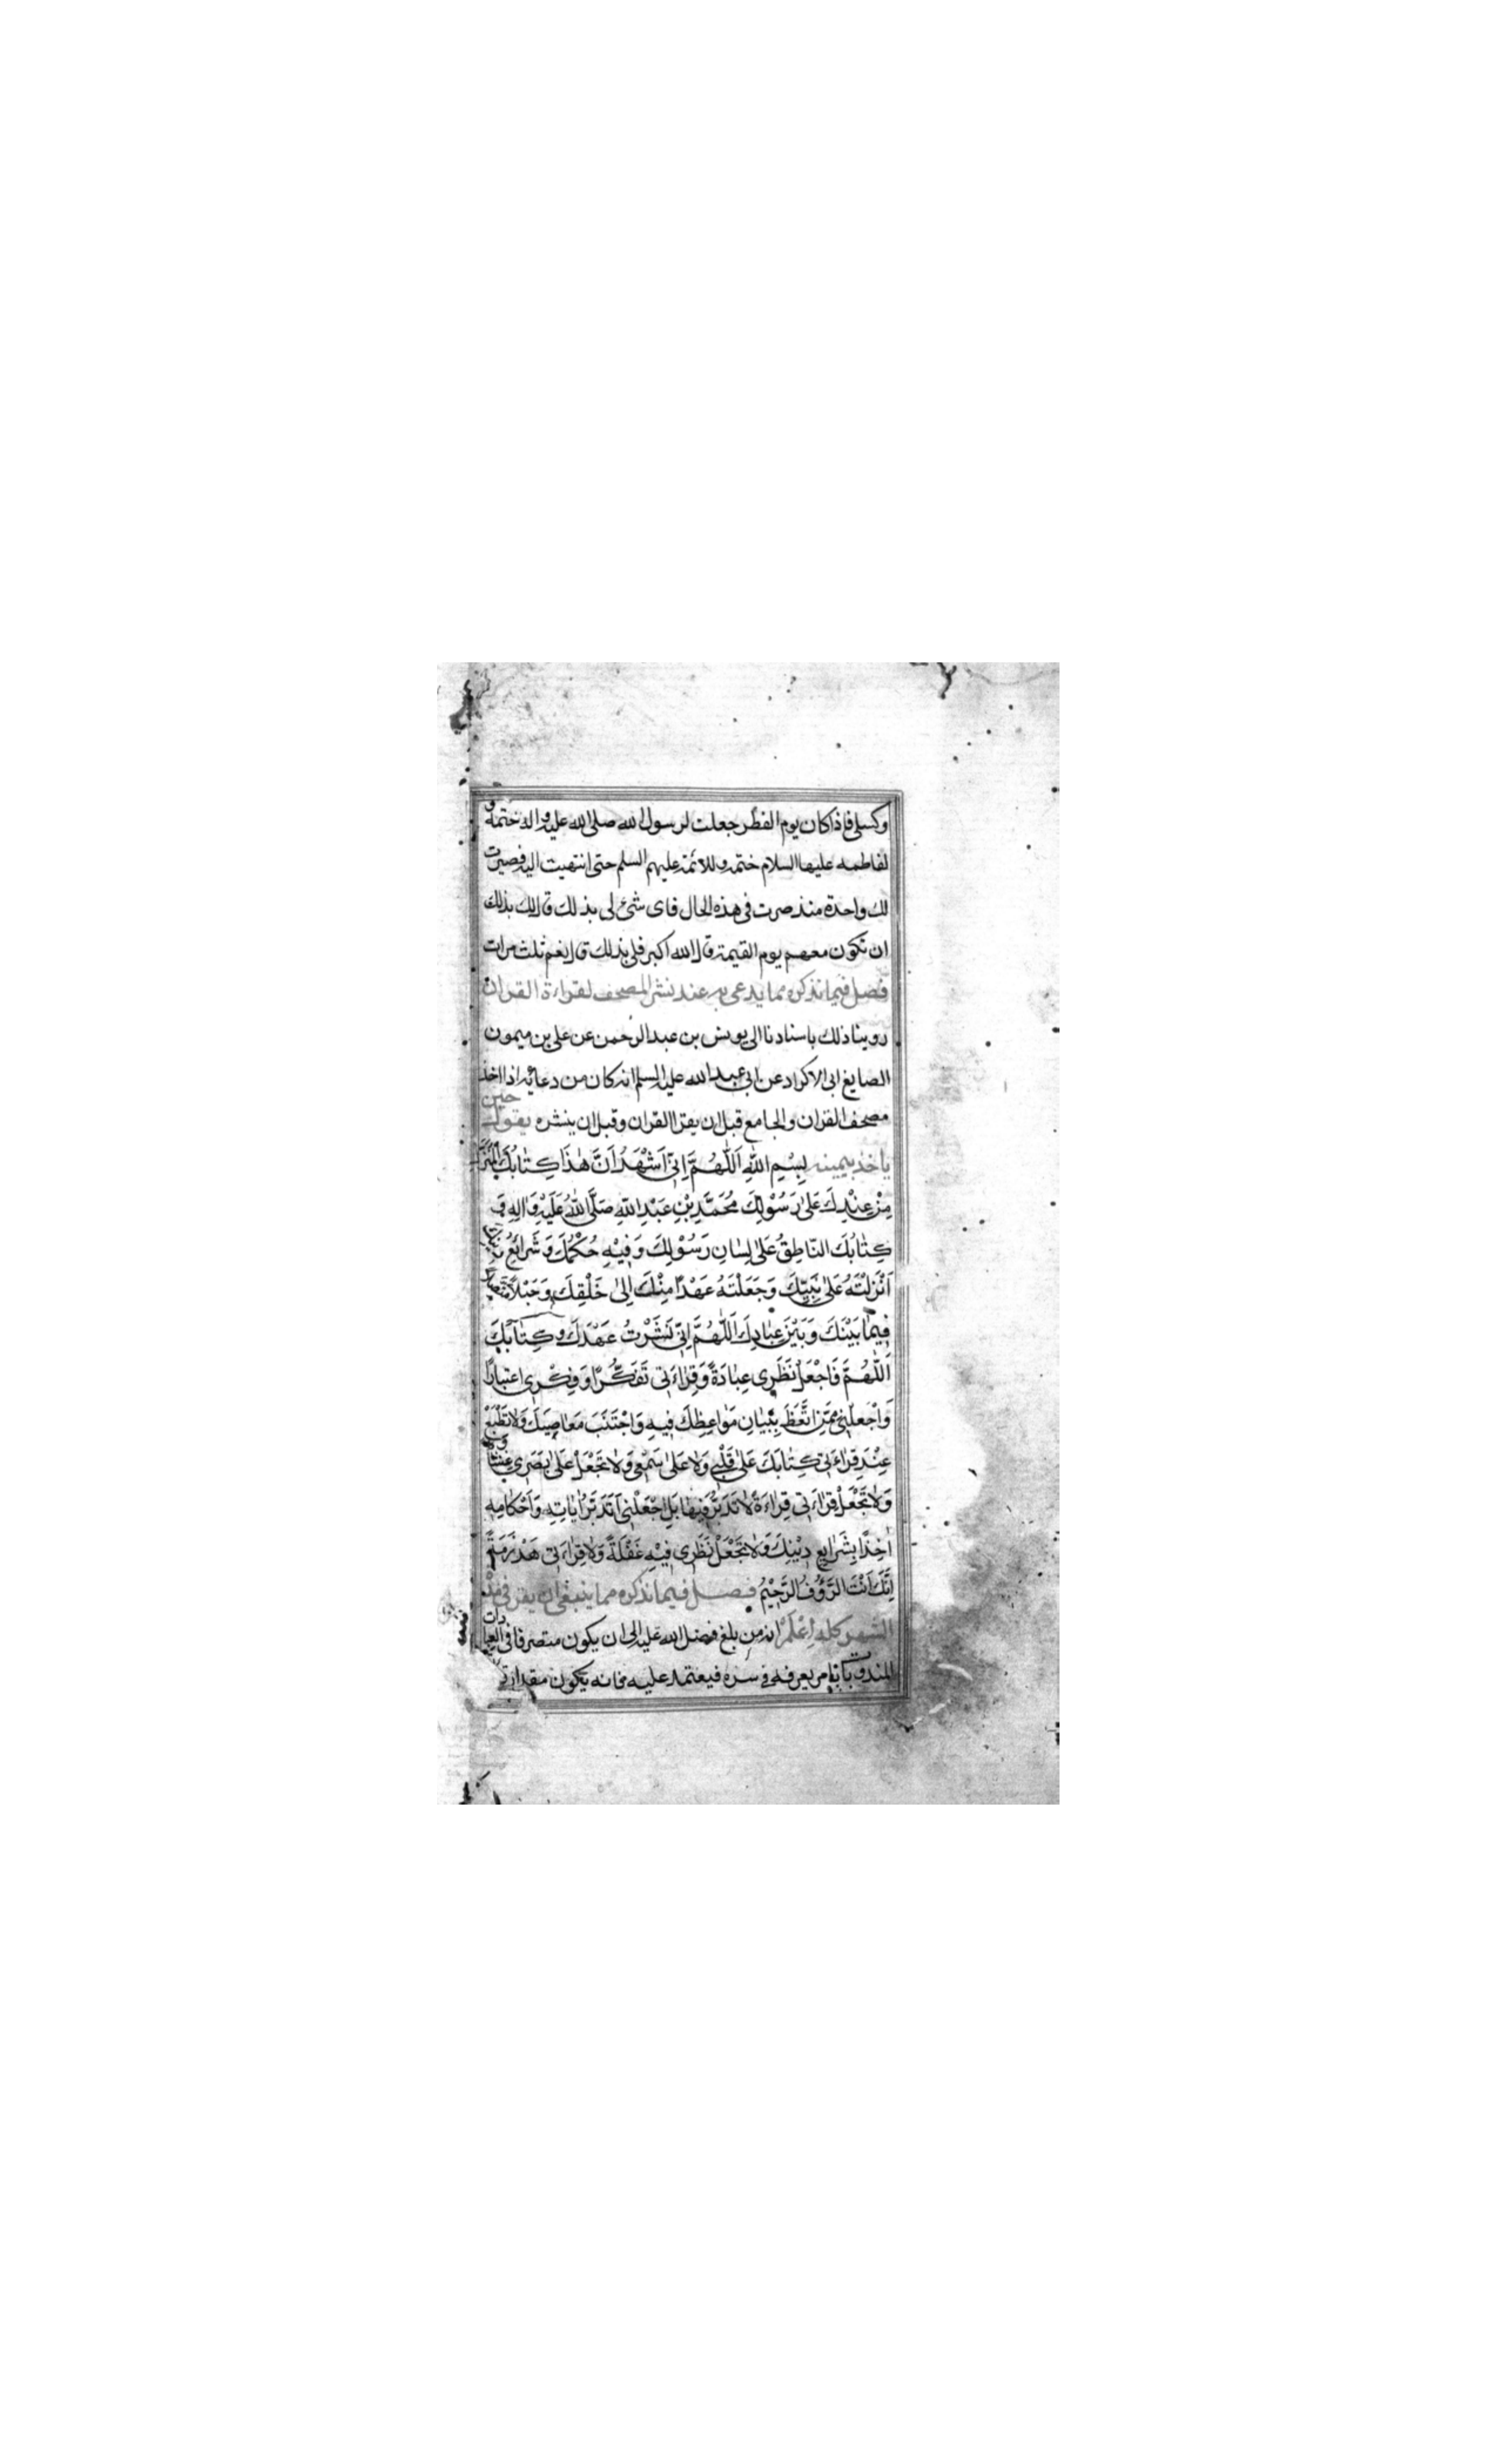 وكسلى فاذا كان يوم الفطر جعلت لرسول الله صلى الله عليه واله ختمة و
لفاطمه عليها السلام ختمة وللائمة عليهم السلم حتى انتهيت اليه فصيرت
لك واحدة منذ صرت فى هذه الحال فاى شئ لى بذلك قال لك بذلك
ان تكون معهم يوم القيمة قال الله اكبر فلى بذلك قال نعم ثلث مرات
فصل فيما نذكره مما يدعى به عند نشر المصحف لقراءة القران
روينا ذلك باسنادنا الى يونس بن عبد الرحمن عن على بن ميمون
الصايغ ابى الاكراد عن ابى عبد الله عليه السلم انه كان من دعائه اذا اخذ
مصحف القران والجامع قبل ان يقرا القران وقبل ان ينشره يقول حين
ياخذ بيمينه بِسْمِ اللهِ اَللّٰهُمَّ اِنّى اَشْهَدُ اَنَّ هٰذَا كِتٰابُكَ الْمُنْزَلُ
مِنْ عِنْدِكَ عَلىٰ رَسُوْلِكَ مُحَمَّدِ بْنِ عَبْدِ اللهِ صَلَّى اللهُ عَلَيْهِ وَاٰلِهِ وَ
كِتٰابُكَ النّاطِقُ عَلىٰ لِسٰانِ رَسُوْلِكَ وَفِيْهِ حُكْمُكَ وَشَرٰايِعُ دينك
اَنْزَلْتَهُ عَلىٰ نَبِيِّكَ وَجَعَلْتَهُ عَهْدًا مِنْكَ اِلىٰ خَلْقِكَ وَحَبْلًا متصلا
فِيمٰا بَيْنَكَ وَبَيْنَ عِبٰادِكَ اَللّٰهُمَّ اِنّى نَشَرْتُ عَهْدَكَ وَكِتٰابَكَ
اَللّٰهُمَّ فَاجْعَلْ نَظَرِى عِبٰادَةً وَقِرٰاءَتى تَفَكُّرًا وَفِكْرِى اعتبارًا
وَاجْعَلْنِى مِمَّنِ اتَّعَظَ بِبَيٰانِ مَوٰاعِظِكَ فِيهِ وَاجْتَنَبَ مَعٰاصِيَكَ وَلا تَطْبَعْ
عِنْدَ قِرٰاءَتى كِتٰابَكَ عَلىٰ قَلْبِى وَلا عَلىٰ سَمْعى وَلا تَجْعَلْ عَلىٰ بَصَرى غشاوة
وَلا تَجْعَلْ قِرٰاءَتى قِرٰاءَةً لا تَدَبُّرَ فِيهٰا بَلِ اجْعَلْنى اَتَدَبَّرُ اٰيٰاتِهِ وَاَحْكٰامِهِ
اٰخِذًا بِشَرٰايِعِ دِيْنِكَ وَلا تَجْعَلْ نَظَرِى فِيْهِ غَفْلَةً وَلا قِرٰاءَتى هَذْرَمَةً
اِنَّكَ اَنْتَ الرَّؤُفُ الرَّحِيْمُ فصل فيما نذكره مما ينبغى ان يقرء فى مدة
الشهر كله اِعْلَمْ انه من بلغ فضل الله عليه الى ان يكون متصرفا فى العبادات
المندوبات بامر يعرفه فى سره فيعتمد عليه فانه يكون مقدار